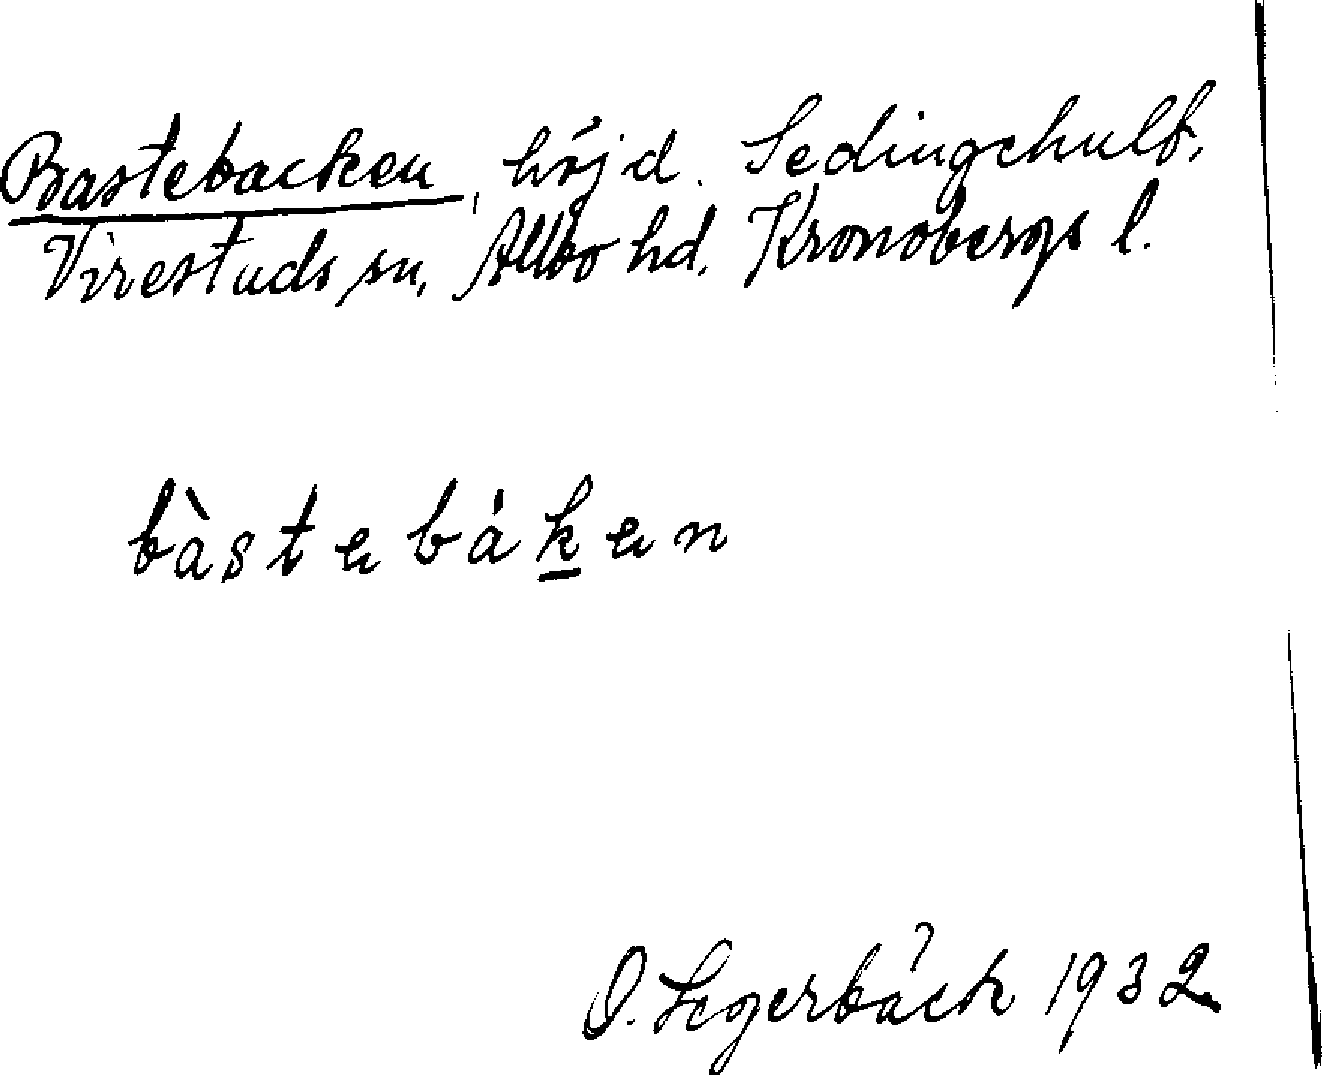 Bastebacken, höjd. Sedingehult,
Virestads sn, Allbo hd, Kronobergs l.
bàstebáken
O. Segerbäck 1932